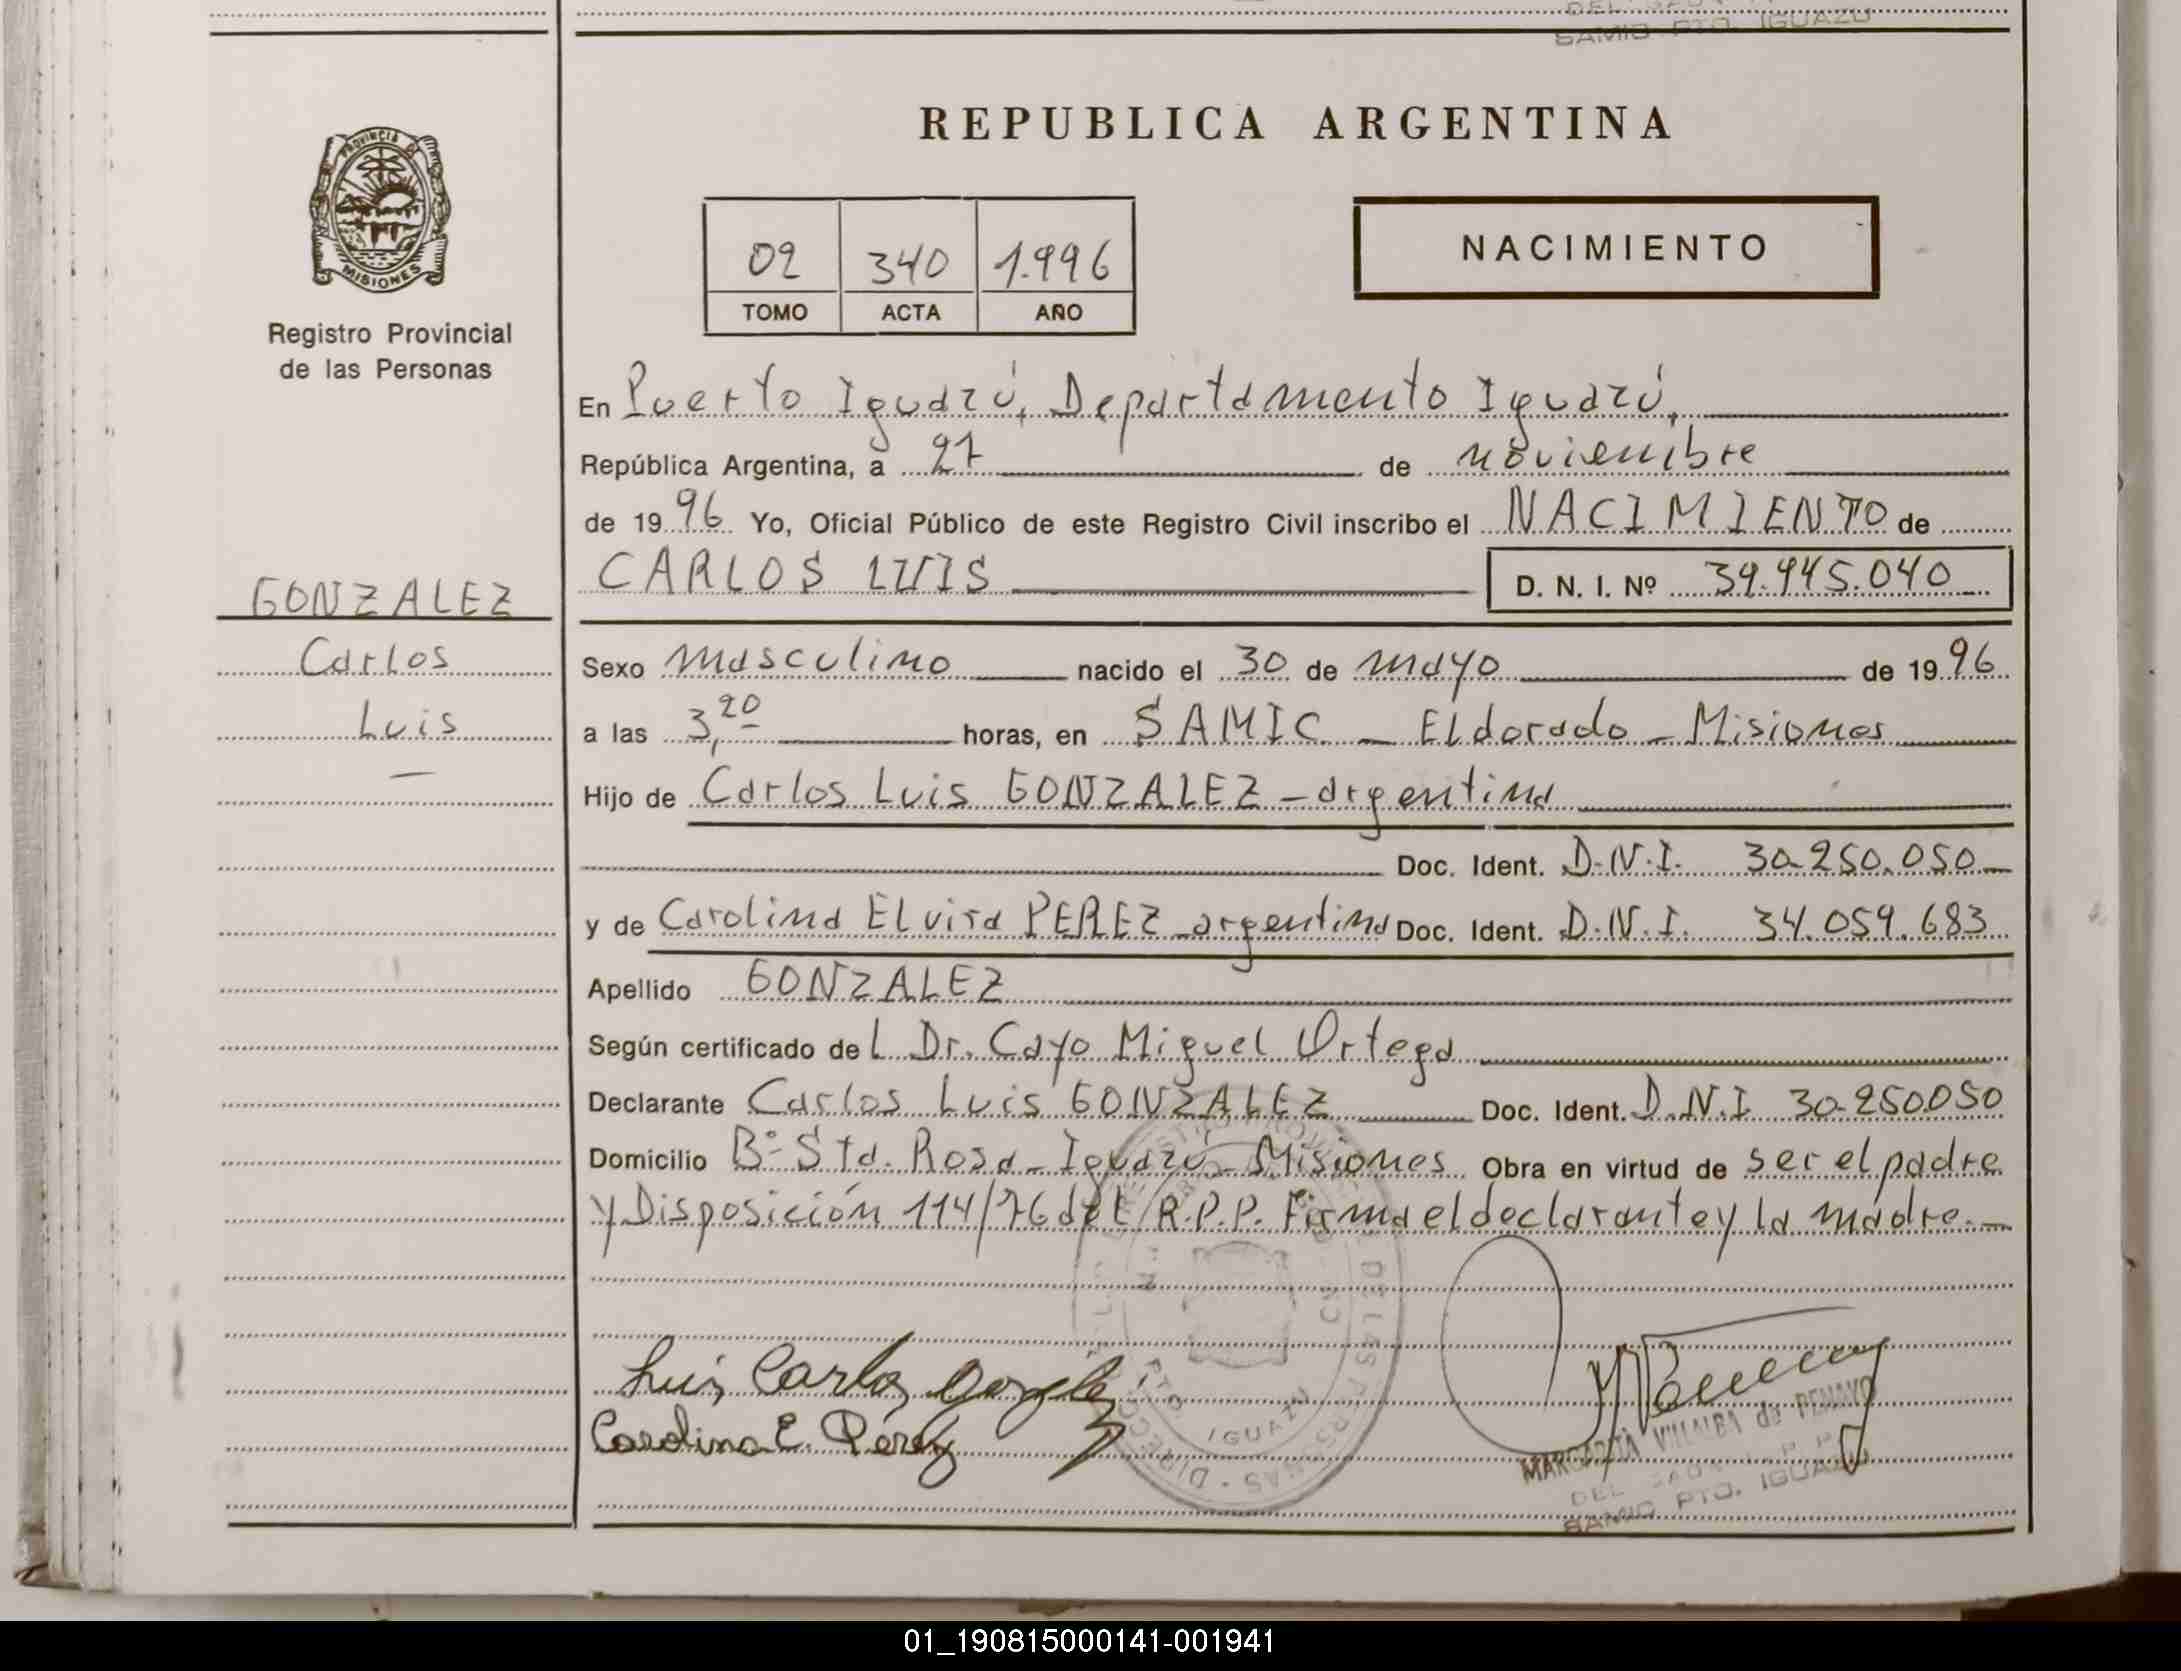 SAMIC PTO. IGUAZU
PROVINCIA DE
MISIONES
Registro Provincial
de las Personas
REPUBLICA ARGENTINA
02 340 1.996
TOMO ACTA AÑO
NACIMIENTO
En Puerto Iguazú, Departamento Iguazú,
República Argentina, a 27 de noviembre
de 1996 Yo, Oficial Público de este Registro Civil inscribo el NACIMIENTO de
CARLOS LUIS D. N. I. Nº 39.945.040
GONZALEZ
Carlos
Luis
Sexo masculino nacido el 30 de mayo de 1996
a las 3,20 horas, en SAMIC - Eldorado - Misiones
Hijo de Carlos Luis GONZALEZ - argentina
Doc. Ident. D.N.I. 30.250.050
y de Carolina Elvira PEREZ - argentina Doc. Ident. D.N.I. 34.059.683
Apellido GONZALEZ
Según certificado del Dr. Cayo Miguel Ortega
Declarante Carlos Luis GONZALEZ Doc. Ident. D.N.I 30.250050
Domicilio Bº Sta. Rosa - Iguazú - Misiones Obra en virtud de ser el padre
y Disposición 114/76 del R.P.P. Firma el declarante y la madre.
Luis Carlos Gonzalez
Carolina E. Pérez
IGUAZU
MARGARITA VILLALBA de PENAYO
SAMIC PTO. IGUAZU
01_190815000141-001941